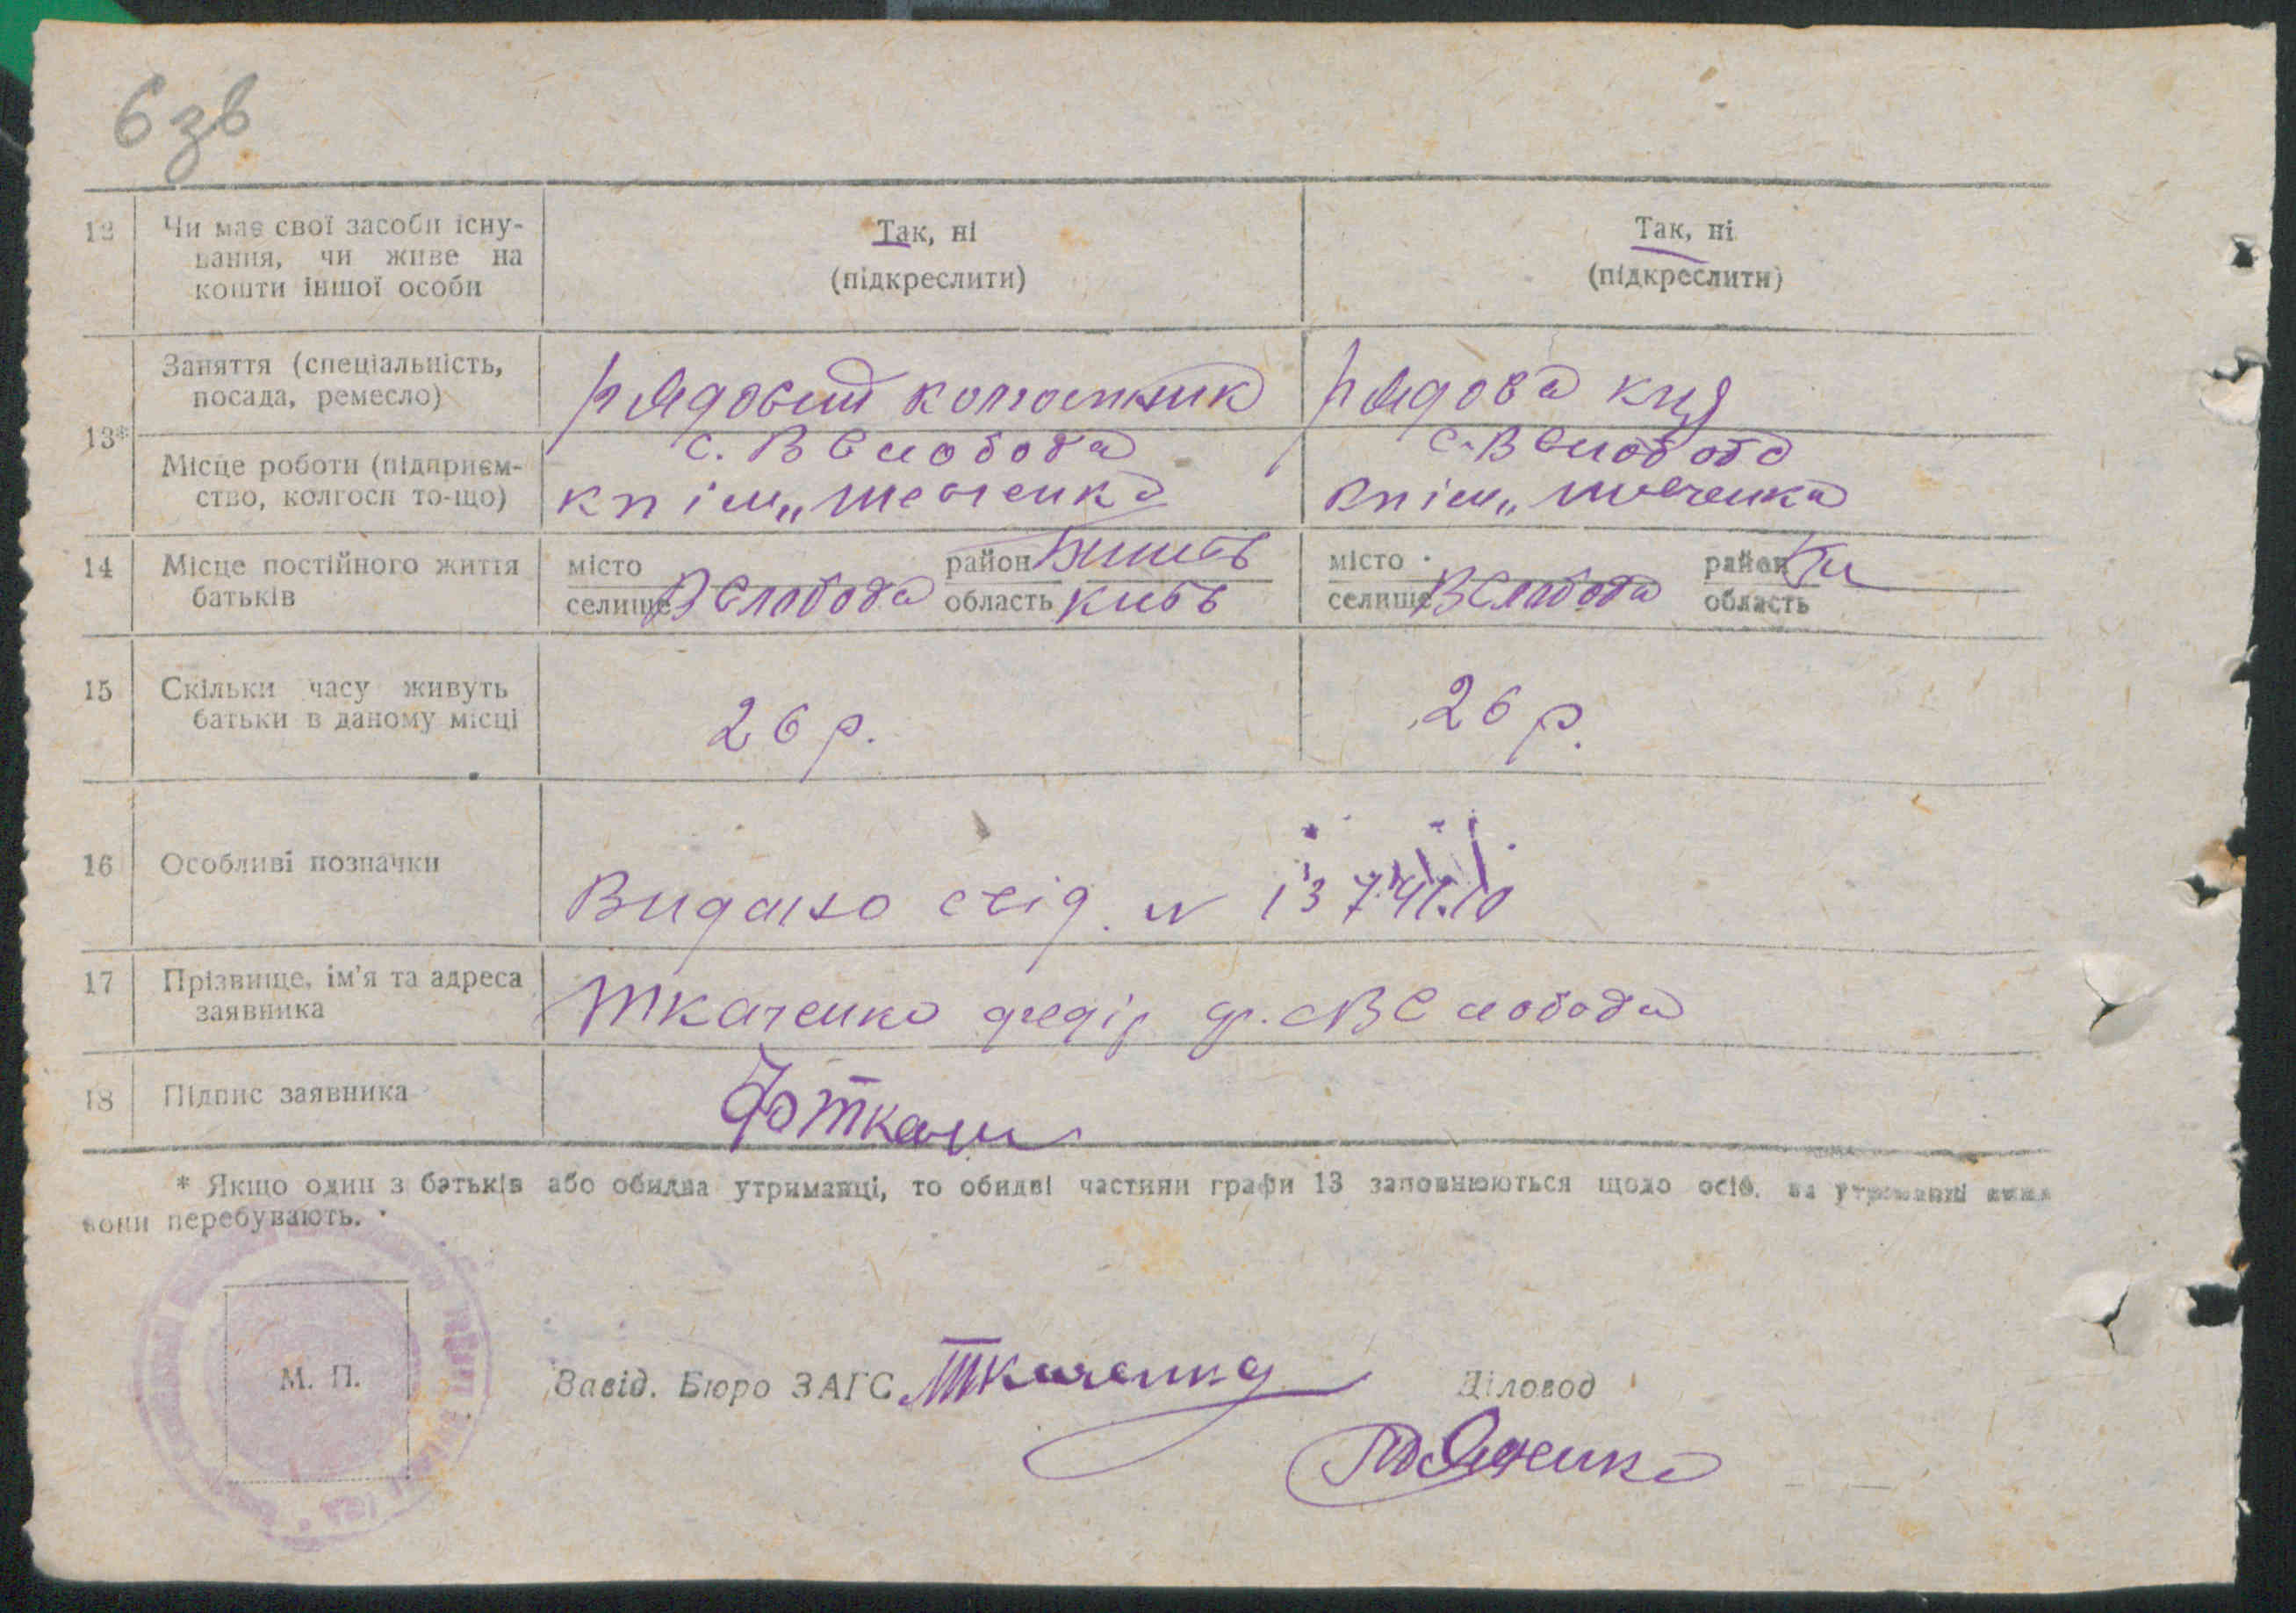 6 зв
12 Чи має свої засоби існу-
вання, чи живе на
кошти іншої особи
Так, ні
(підкреслити)
Так, ні
(підкреслити)
13* Заняття (спеціальність,
посада, ремесло)
рядовий колгоспник
рядова
Місце роботи (підприєм-
ство, колгосп то-що)
с. В Слобода
кп ім „ Шевченка
с. В Слобода
кп ім „ Шевченка
14 Місце постійного життя
батьків
місто
селище В Слобода
район
область Київ
місто
селище В Слобода
район
область
15 Скільки часу живуть
батьки в даному місці
26 р.
26 р.
16 Особливі позначки
Видано свід. №
17 Прізвище, ім'я та адреса
заявника
Ткаченко Федір В Слобода
18 Підпис заявника
* Якщо один з батьків або обидва утриманці, то обидві частини графи 13 заповнюються щодо осіб, на утриманні яких
вони перебувають.
М. П.
Завід. Бюро ЗАГС Ткаченко
Діловод